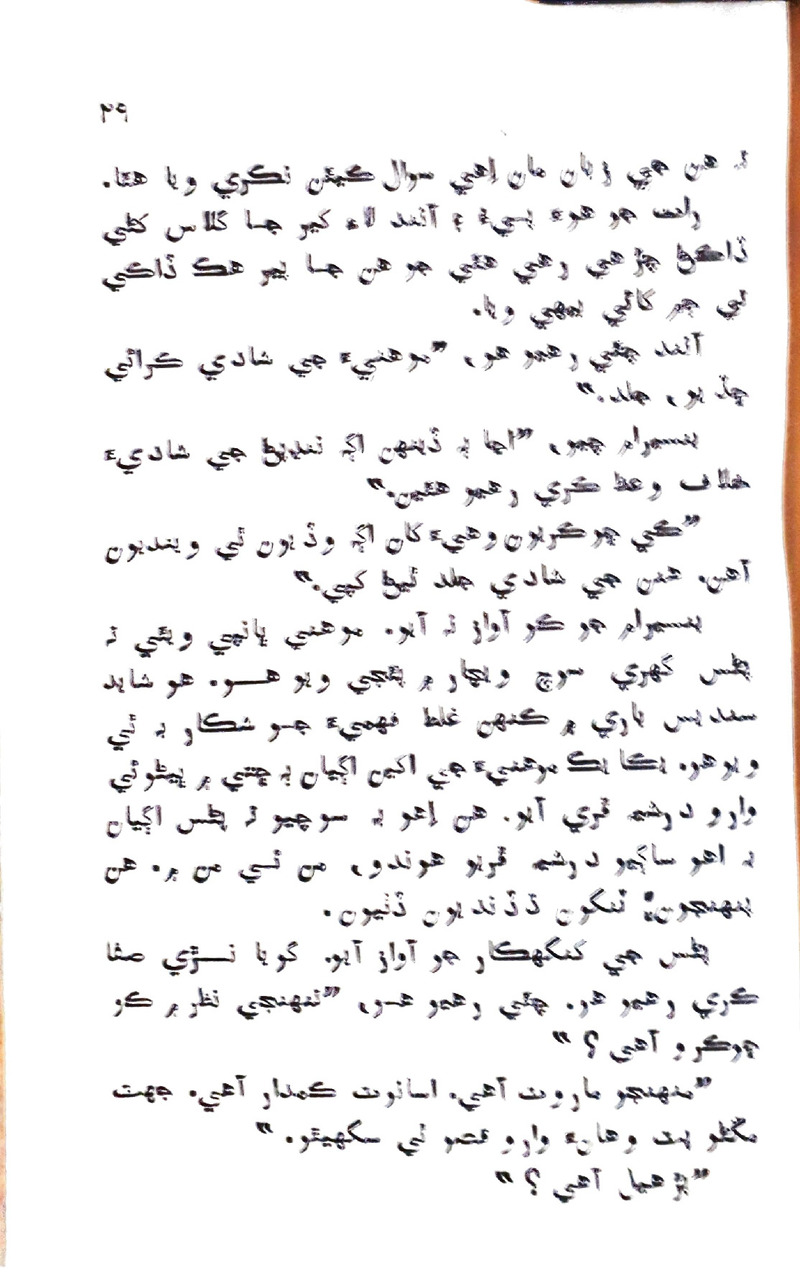 ٣٩
نہ هن جي زبان مان اِهي سوال ڪيئن نڪري ويا هئا.
رات جو هوءَ پيءُ ۽ آنند لاءِ کير جا گلاس کڻي
ڏاڪڻ چڙهي رهي هئي جو هن جا پير هڪ ڏاڪي
تي ڄر کائي بيهي ويا.
آنند چئي رهيو هو، ”موهنيءَ جي شادي ڪرائي
ڇڏيو، جلد.“
پسيرام چيو، ”اڃا ٻه ڏينهن اڳ ننڍپڻ جي شاديءَ
خلاف وعظ ڪري رهيو هئين.“
”ڪي ڇوڪريون وهيءَ کان اڳ وڏيون ٿي وينديون
آهن. هنن جي شادي جلد ٿيڻ کپي.“
پسيرام جو ڪو آواز نہ آيو. موهني ڀانپي ويئي تہ
پڻس گهري سوچ ويچار ۾ پئجي ويو هو. هو شايد
سنديس باري ۾ ڪنهن غلط فهميءَ جو شڪار بہ ٿي
ويو هو. يڪايڪ موهنيءَ جي اکين اڳيان ٻہ ڇتي ۾
وارو درشيہ ڦري آيو. هن اِهو بہ سوچيو تہ پڻس اڳيان
بہ اهو ساڳيو درشيہ ڦريو هوندو، من ئي من ۾. هن
پنهنجون ٽنگون ڏڏنديون ڏٺيون.
پڻس جي کنگهڪار جو آواز آيو. گويا نڙي صفا
ڪري رهيو هو. چئي رهيو هو، ”تنهنجي نظر ۾ ڪو
ڇوڪرو آهي؟“
”منهنجو ماروٽ آهي. اسانوٽ ڪمدار آهي. جهٽ
مڱڻو پٽ وهانءُ وارو قصو ٿي سگهيٿو.“
”پڙهيل آهي؟“